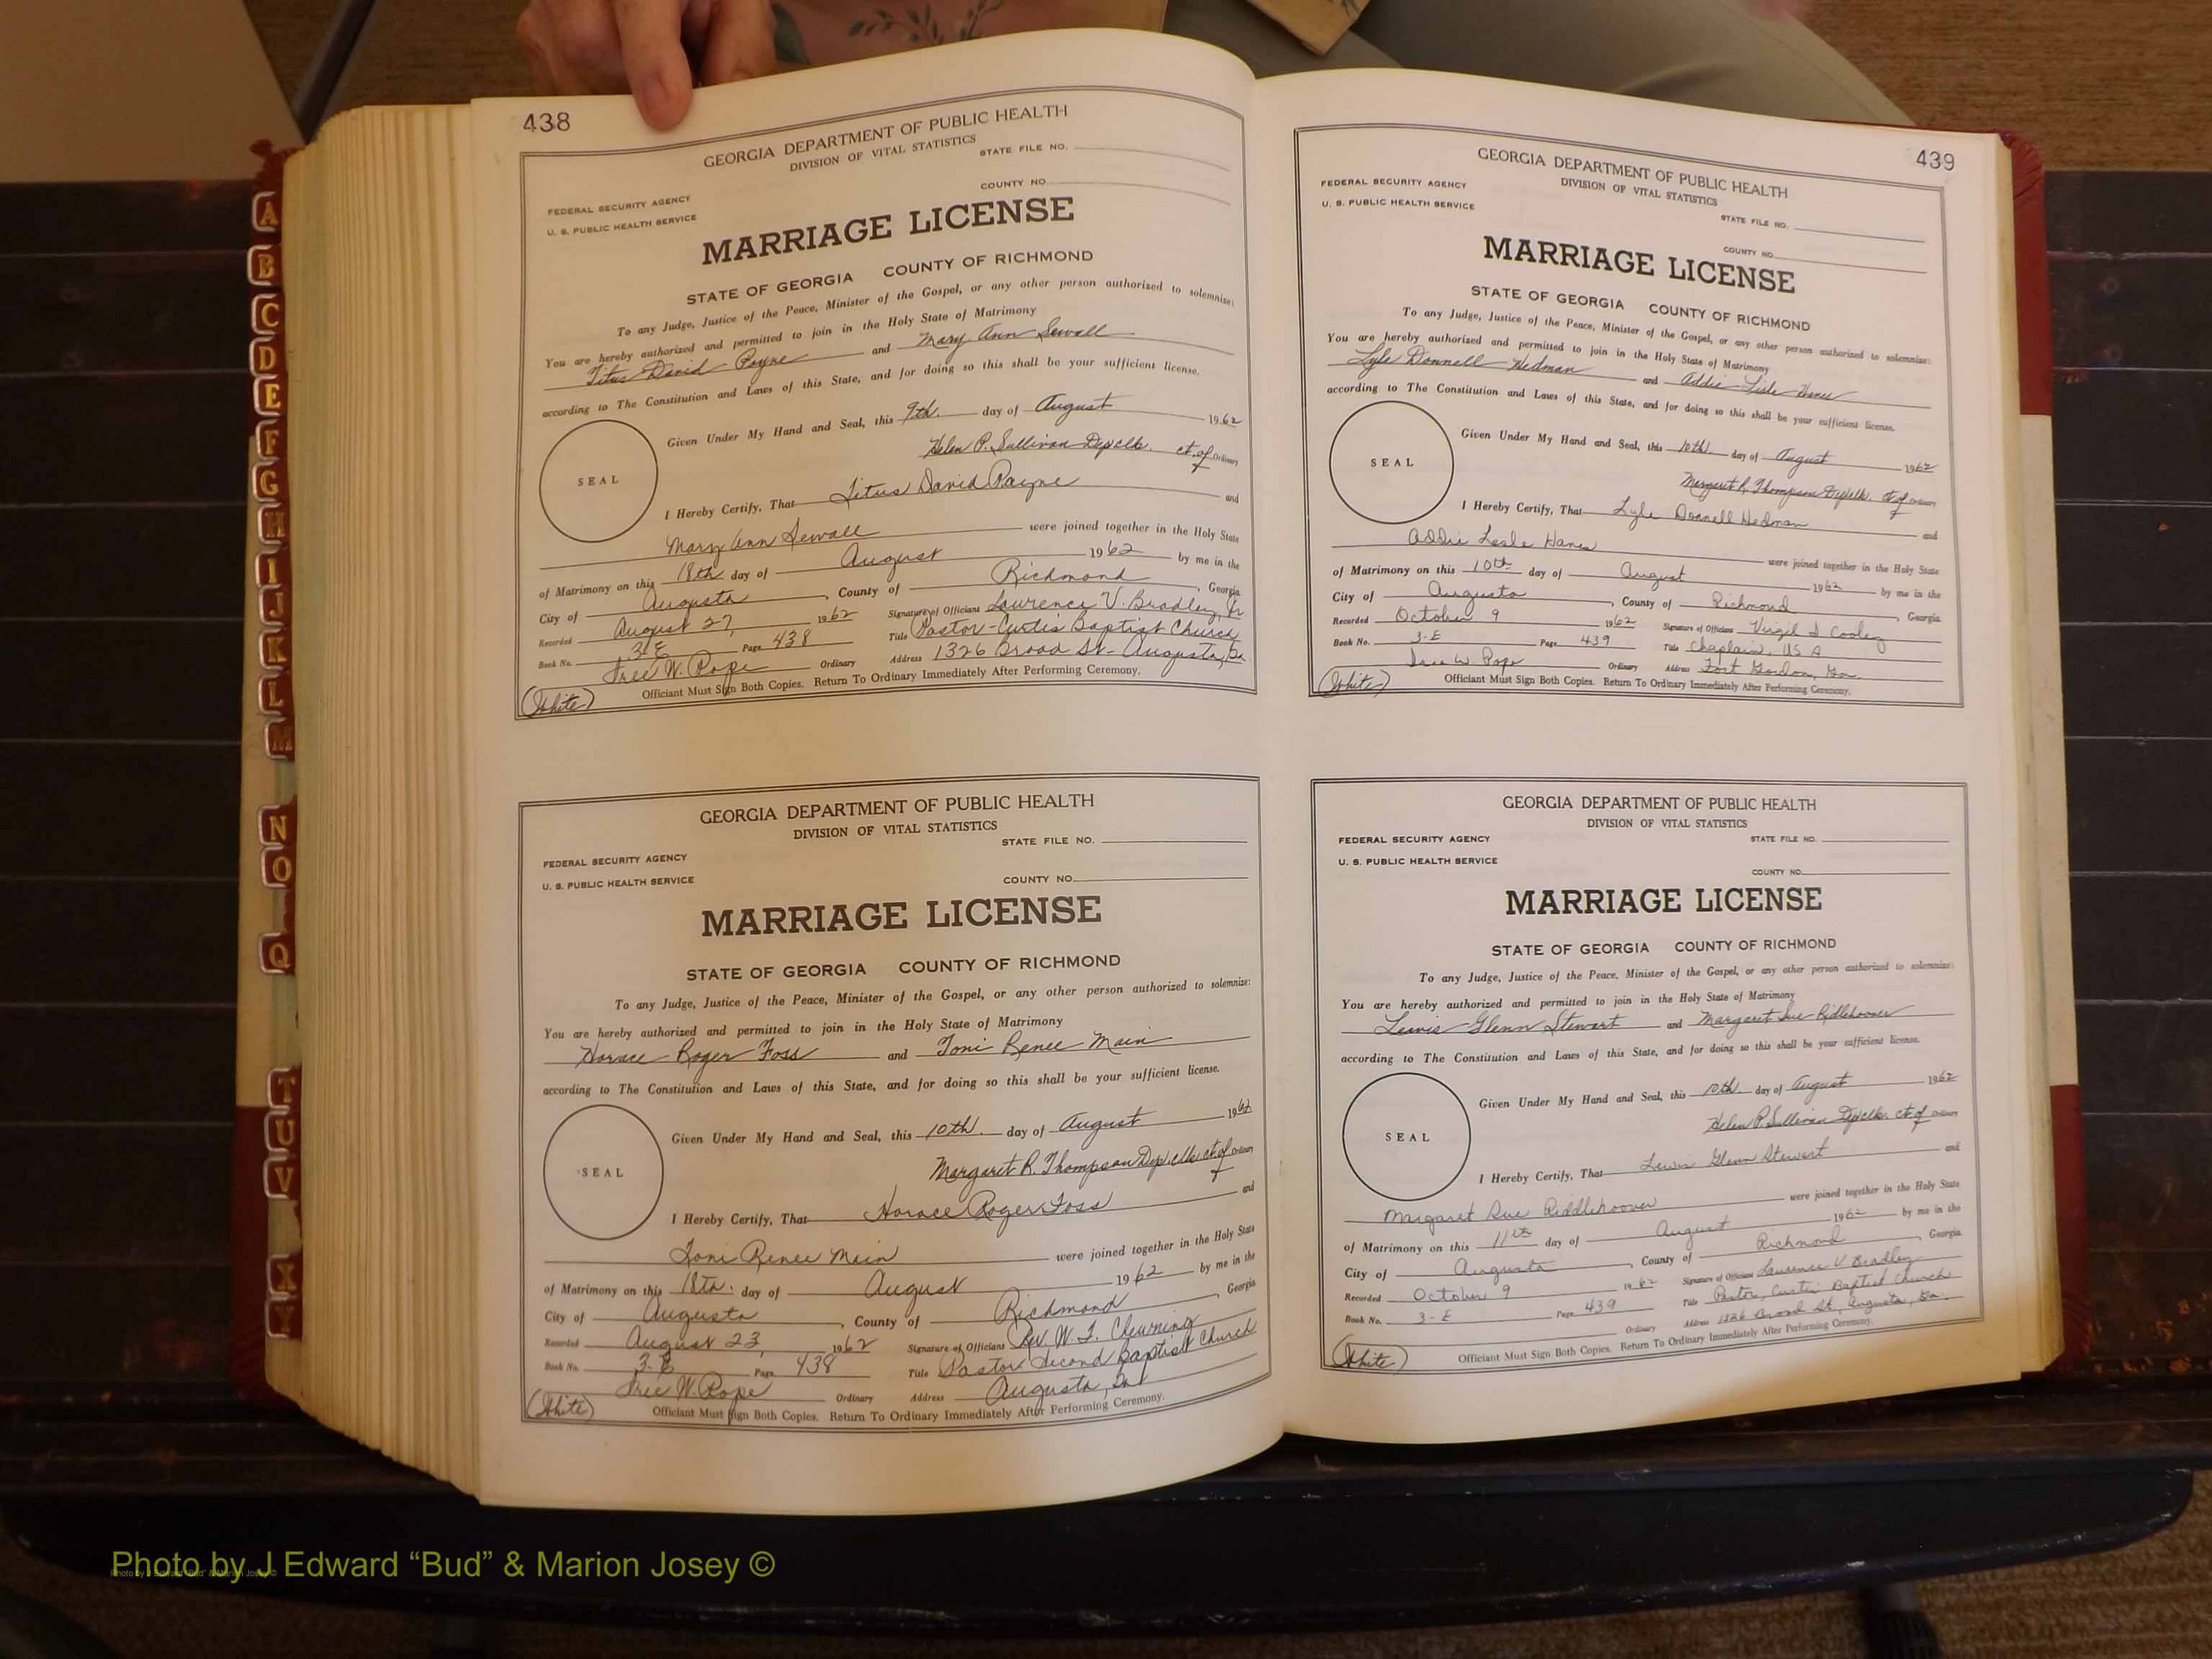 438
GEORGIA DEPARTMENT OF PUBLIC HEALTH
DIVISION OF VITAL STATISTICS
STATE FILE NO.
FEDERAL SECURITY AGENCY
COUNTY NO.
U. S. PUBLIC HEALTH SERVICE
MARRIAGE LICENSE
STATE OF GEORGIA COUNTY OF RICHMOND
To any Judge, Justice of the Peace, Minister of the Gospel, or any other person authorized to solemnize:
You are hereby authorized and permitted to join in the Holy State of Matrimony
Titus David Payne and Mary Ann Sewall
according to The Constitution and Laws of this State, and for doing so this shall be your sufficient license.
Given Under My Hand and Seal, this 9th. day of August 1962
Helen P. Sullivan Dep clk. ct. of Ordinary
SEAL
I Hereby Certify, That Titus David Payne and
Mary Ann Sewall were joined together in the Holy State
of Matrimony on this 18th day of August 1962 by me in the
City of Augusta, County of Richmond, Georgia
Recorded August 27, 1962 Signature of Officiant Lawrence V. Bradley, Jr
Book No. 3-E Page 438 Title Pastor-Curtis Baptist Church
Tree W. Pope Ordinary Address 1326 Broad St- Augusta, Ga
(White) Officiant Must Sign Both Copies. Return To Ordinary Immediately After Performing Ceremony.
GEORGIA DEPARTMENT OF PUBLIC HEALTH
DIVISION OF VITAL STATISTICS
STATE FILE NO.
FEDERAL SECURITY AGENCY
U. S. PUBLIC HEALTH SERVICE
COUNTY NO.
MARRIAGE LICENSE
STATE OF GEORGIA COUNTY OF RICHMOND
To any Judge, Justice of the Peace, Minister of the Gospel, or any other person authorized to solemnize:
You are hereby authorized and permitted to join in the Holy State of Matrimony
Horace Roger Foss and Toni Renee Main
according to The Constitution and Laws of this State, and for doing so this shall be your sufficient license.
Given Under My Hand and Seal, this 10th. day of August 1962
Margaret R. Thompson Dep clk ct of Ordinary
SEAL
I Hereby Certify, That Horace Roger Foss and
Toni Renee Main were joined together in the Holy State
of Matrimony on this 18th. day of August 1962 by me in the
City of Augusta, County of Richmond, Georgia
Recorded August 23, 1962 Signature of Officiant Rev. W. J. Chewning
Book No. 3-E Page 438 Title Pastor Second Baptist Church
Tree W. Pope Ordinary Address Augusta, Ga
(White) Officiant Must Sign Both Copies. Return To Ordinary Immediately After Performing Ceremony.
439
GEORGIA DEPARTMENT OF PUBLIC HEALTH
DIVISION OF VITAL STATISTICS
FEDERAL SECURITY AGENCY
U. S. PUBLIC HEALTH SERVICE
STATE FILE NO.
COUNTY NO.
MARRIAGE LICENSE
STATE OF GEORGIA COUNTY OF RICHMOND
To any Judge, Justice of the Peace, Minister of the Gospel, or any other person authorized to solemnize:
You are hereby authorized and permitted to join in the Holy State of Matrimony
Lyle Donnell Hedman and Addie Lisle Hanes
according to The Constitution and Laws of this State, and for doing so this shall be your sufficient license.
Given Under My Hand and Seal, this 10th. day of August 1962
Margaret R. Thompson Dep clk. ct of Ordinary
SEAL
I Hereby Certify, That Lyle Donnell Hedman and
Addie Lesle Hanes were joined together in the Holy State
of Matrimony on this 10th day of August 1962 by me in the
City of Augusta, County of Richmond, Georgia
Recorded October 9 1962 Signature of Officiant Virgil I Cooley
Book No. 3-E Page 439 Title Chaplain, US A
Tree W. Pope Ordinary Address Fort Gordon, Ga.
(White) Officiant Must Sign Both Copies. Return To Ordinary Immediately After Performing Ceremony.
GEORGIA DEPARTMENT OF PUBLIC HEALTH
DIVISION OF VITAL STATISTICS
FEDERAL SECURITY AGENCY STATE FILE NO.
U. S. PUBLIC HEALTH SERVICE
COUNTY NO.
MARRIAGE LICENSE
STATE OF GEORGIA COUNTY OF RICHMOND
To any Judge, Justice of the Peace, Minister of the Gospel, or any other person authorized to solemnize:
You are hereby authorized and permitted to join in the Holy State of Matrimony
Lewis Glenn Stewart and Margaret Sue Ridlehoover
according to The Constitution and Laws of this State, and for doing so this shall be your sufficient license.
Given Under My Hand and Seal, this 10th. day of August 1962
Helen P. Sullivan Dep clk. ct. of Ordinary
SEAL
I Hereby Certify, That Lewis Glenn Stewart and
Margaret Sue Riddlehoover were joined together in the Holy State
of Matrimony on this 11th day of August 1962 by me in the
City of Augusta, County of Richmond, Georgia
Recorded October 9 1962 Signature of Officiant Laurence V. Bradley
Book No. 3-E Page 439 Title Pastor, Curtis Baptist Church
Ordinary Address 1326 Broad St, Augusta, Ga.
(White) Officiant Must Sign Both Copies. Return To Ordinary Immediately After Performing Ceremony.
A
B
C
D
E
F
G
H
I
J
K
L
M
N
O
Q
T
U
V
X
Y
Photo by J Edward “Bud” & Marion Josey ©
Photo by J Edward "Bud" & Marion Josey ©